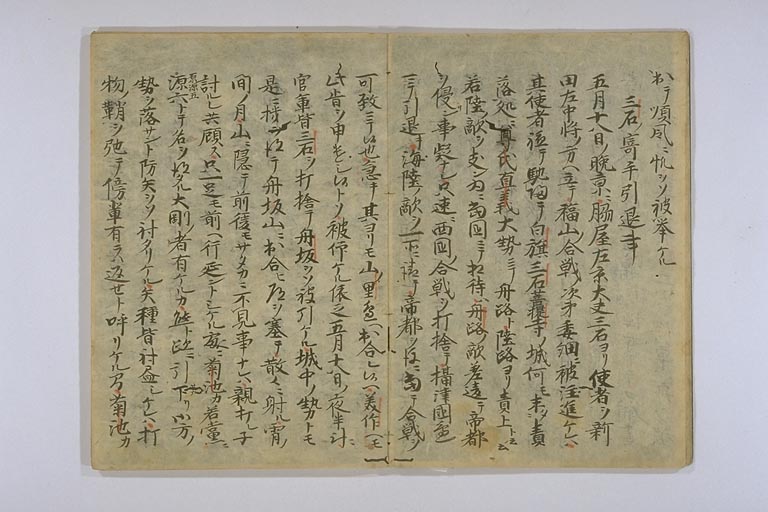 於テ順風ニ帆ヲソ被挙ケル
三石ノ寄手引退事
五月十八日ノ晩景ニ脇屋左京大夫三石ヨリ使者ヲ新
田左中将ノ方ヘ立テ福山合戦ノ次第委細ニ被注進ケレハ
其使者軈テ馳帰テ白旗三石菩提寺ノ城何モ未ソ責
落処ニ尊氏直義大勢ニテ舟路ト陸路ヨリ責上ト云
若陸ノ敵ヲ支ン為ニ当国ニテ相待ハ舟路ノ敵差違テ帝都
ヲ侵ン事疑ナシ只速ニ西国ノ合戦ヲ打捨テ摂津国辺
ニテ引退キ海陸ノ敵ヲ一所ニ請テ帝都ヲ後ニ当テ合戦ヲ
可致ニテ候也急キ其ヨリモ山ノ里辺ヘ出合レ候ヘ美作ヘモ
此旨ヲ申遣シ候トソ被仰ケル依之五月十八日ノ夜半計ニ
官軍皆三石ヲ打捨テ舟坂ヲソ被引ケル城中ノ勢トモ
是ニ得テ舟坂山ニ出合ヒ道ヲ塞テ散々ニ射ル宵ノ
間ノ月山ニ隠テ前後モサタカニ不見事ナレハ親打レ子
討レ共顧ス只一足モ前ヘ行延ントシケル処ニ菊池カ若党ニ
原源五源六トテ名ヲ得タル大剛ノ者有ケルカ態ト跡ニ引下リ御方ノ
勢ヲ落サント防矢ヲソ射タリケル矢種皆射尽シケレハ打
物ノ鞘ヲ弛テ傍輩有ラハ返セト呼リケルヲ菊池カ